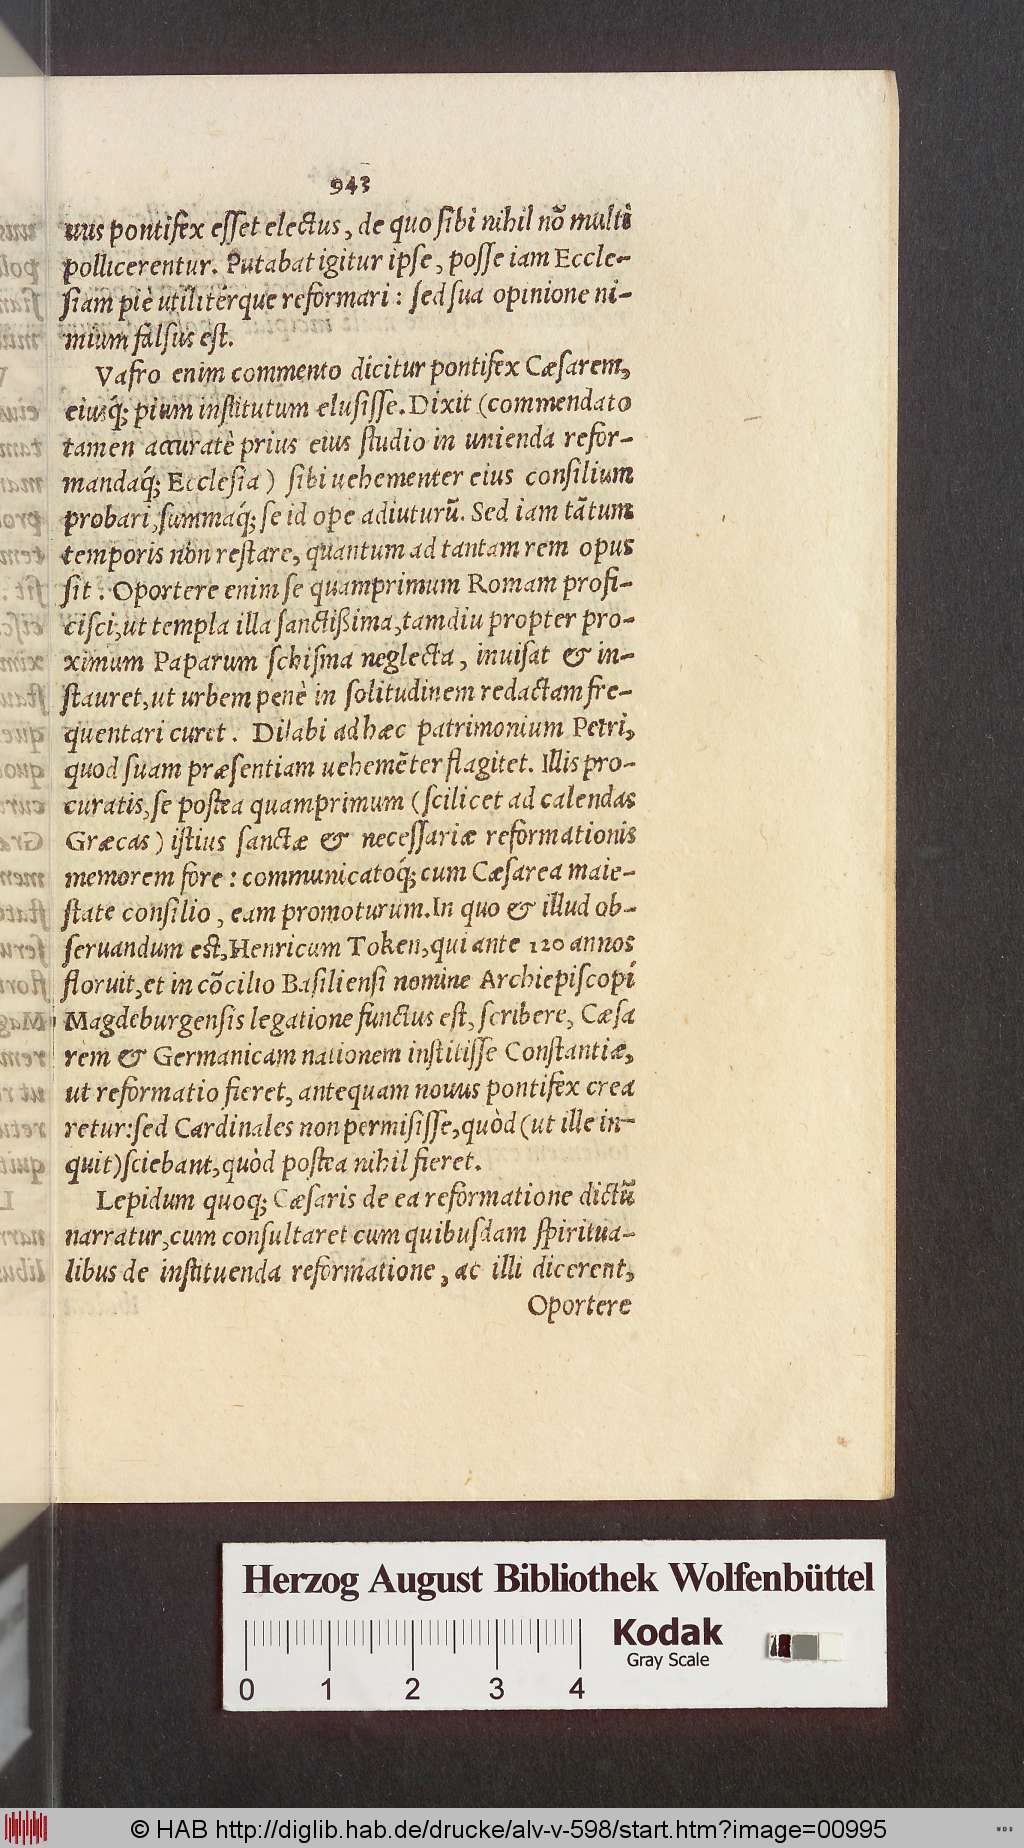 943
uus pontifex esset electus, de quo sibi nihil nō multi
pollicerentur. Putabat igitur ipse, posse iam Eccle-
siam piè utilitérque reformari: sed sua opinione ni-
mium falsus est.
Vafro enim commento dicitur pontifex Cæsarem,
eiusq́; pium institutum elusisse. Dixit (commendato
tamen accuratè prius eius studio in unienda refor-
mandaq́; Ecclesia) sibi uehementer eius consilium
probari, summaq́; se id ope adiuturū. Sed iam tātum
temporis non restare, quantum ad tantam rem opus
sit. Oportere enim se quamprimum Romam profi-
cisci, ut templa illa sanctißima, tamdiu propter pro-
ximum Paparum schisma neglecta, inuisat & in-
stauret, ut urbem penè in solitudinem redactam fre-
quentari curet. Dilabi ad hæc patrimonium Petri,
quod suam præsentiam uehemēter flagitet. Illis pro-
curatis, se postea quamprimum (scilicet ad calendas
Græcas) istius sanctæ & necessariæ reformationis
memorem fore: communicatoq́; cum Cæsarea maie-
state consilio, eam promoturum. In quo & illud ob-
seruandum est, Henricum Token, qui ante 120 annos
floruit, et in cōcilio Basiliensi nomine Archiepiscopi
Magdeburgensis legatione functus est, scribere, Cæsa
rem & Germanicam nationem institisse Constantiæ,
ut reformatio fieret, antequam nouus pontifex crea
retur: sed Cardinales non permisisse, quòd (ut ille in-
quit) sciebant, quòd postea nihil fieret.
Lepidum quoq; Cæsaris de ea reformatione dictū
narratur, cum consultaret cum quibusdam spiritua-
libus de instituenda reformatione, ac illi dicerent,
Oportere
Herzog August Bibliothek Wolfenbüttel
Kodak
Gray Scale
0 1 2 3 4
© HAB http://diglib.hab.de/drucke/alv-v-598/start.htm?image=00995